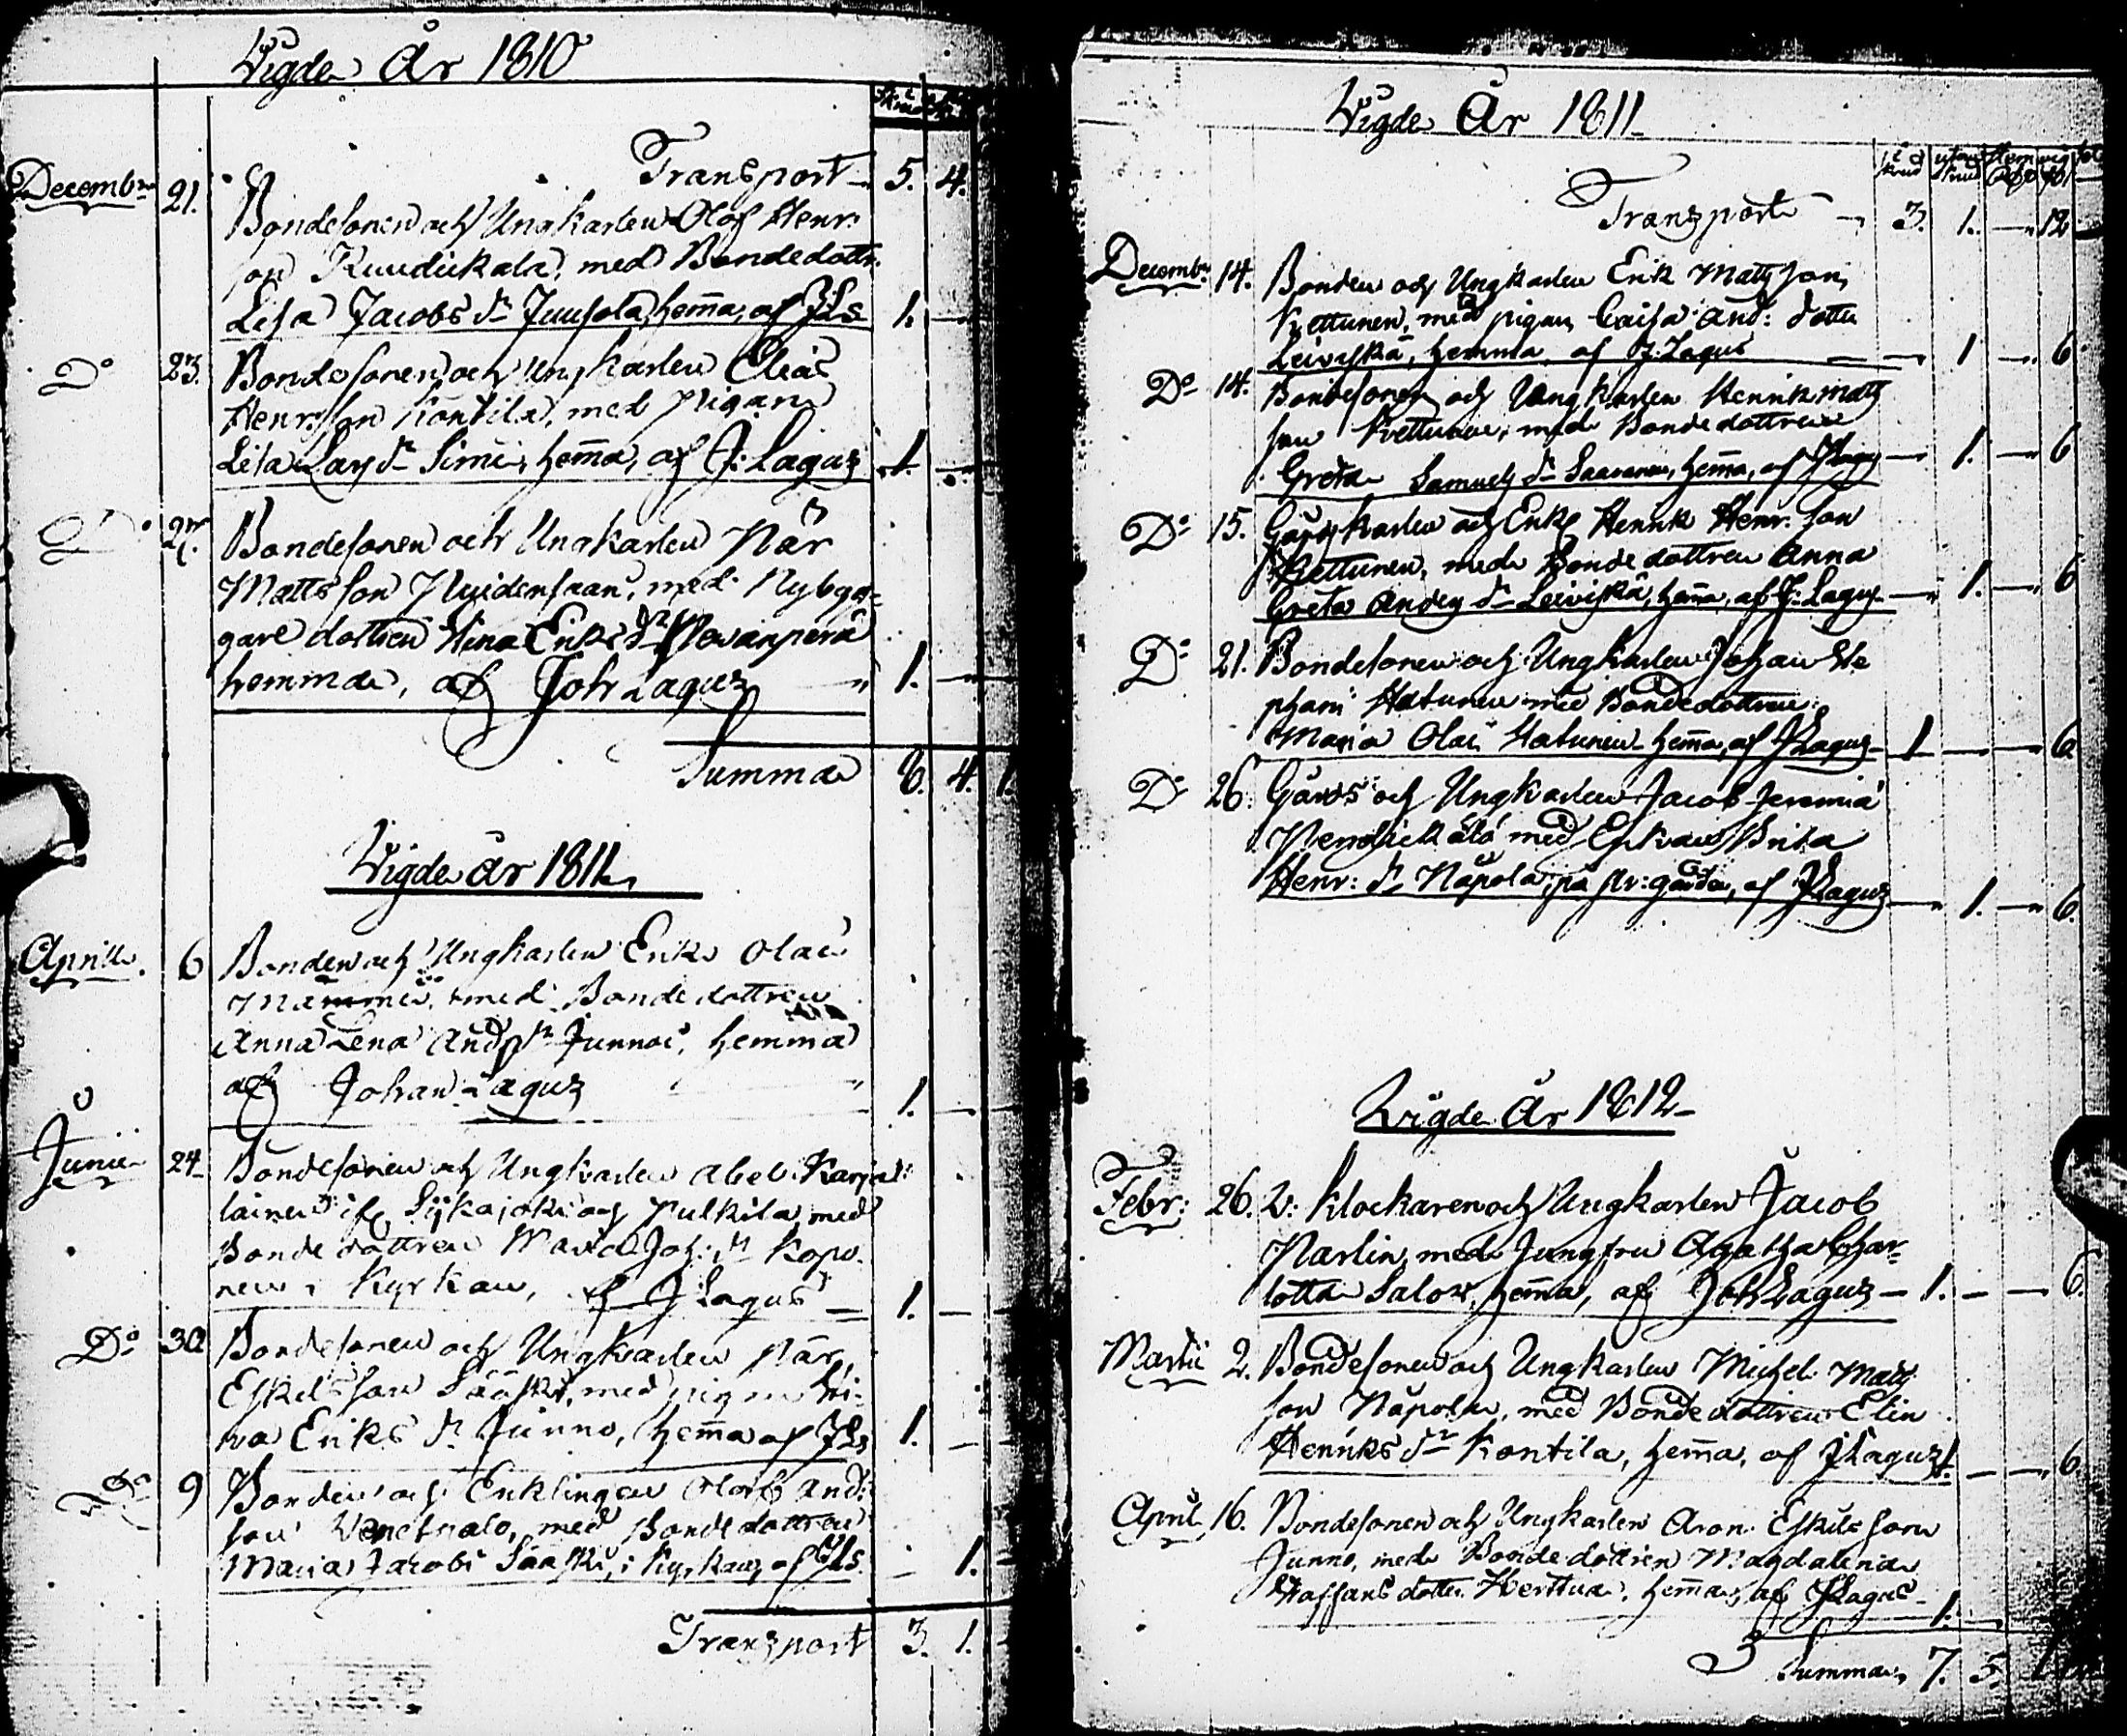 Wigde År 1810
Transport 5. 4.
Decembr 21. Bondesonen och Ungkarlen Olof Henr:
son Kuudickala, med Bondedottr.
Lisa Jacobs dr Juusola, hema, af JLs 1.
Do 23. Bondesonen och Ungkarlen Elias
Henr: son Kontila, med Pigan
Lisa Lars dr Simi, hema, af J: Lagus 1.
Do 27. Bondesonen och Ungkarlen Pär
Matts son, med Nybyg=
gare dottren Stina Eriks dr
hemma, af Joh Lagus 1.
Summa 8. 4. 1.
Wigde år 1811
Aprill. 6 Bonden och Ungkarlen Erik Olai
med Bondedottren
Anna Lena And. dr Junnoi, hemma
af Johan Lagus 1.
Junii 24 Bondesonen och Ungkarlen Abel Karja
lainen if Sijkajoki och Pulkila med
Bonde dottren Maria Joh: dr Kopo
nen i Kyrkan, af J Lagus 1.
Do 30 Bondesonen och Ungkarlen Pär
Eskils son Sääski, med pigan
Eriks dr Junno, hema af JLs 1.
Do 9 Bonden och Enklingen Olof And:
son, med Bonde dottren
Maria Jacobs Sääski, i Kyrkan, af JLs. 1.
Transport 3. 1.
Wigde År 1811
Transport 3. 1. 12
Decembr. 14. Bonden och Ungkarlen Erik Matts son
Kettunen, med pigan Caisa And: dotter
Leiviskä, hemma af J. Lagus 1 6
Do 14. Bondesonen och Ungkarlen Henrik Matts
son Kettunen, med Bondedottren
Greta Samuels dr Saaranen, hema, af J Lagus 1. 6
Do 15. och Enkl Henrik Henr. son
Kettunen, med Bonde dottren Anna
Greta Anders dr Leiviskä, hema, af J. Lagus 1. 6
Do 21. Bondesonen och Ungkarlen Johan Ste
phani Hatunen med Bondedottren
Maria Olai Hatunen hema, af J Lagus 1 6
Do 26. Gårds och Ungkarlen Jacob Jeremiä
med Enkan Brita
Henr: dr Näpola, på Pr: gården, af J Lagus 1. 6.
Wigde År 1812
Febr: 26. V: Klockaren och Ungkarlen Jacob
Narlin, med Jungfru Agatha Char=
lotta Salox, hema, af Joh Lagus 1. 6.
Martii 2. Bondesonen och Ungkarlen Michel Matts
son Näpola, med Bondedottren Elin
Henriks dr Kontila, hema, af J Lagus 1. 6
April 16. Bondesonen och Ungkarlen Aron Eskils son
Junno, med Bonde dottren Magdalena
Staffans dotter Herttua, hema, af J Lagus 1.
Summa, 7. 5.